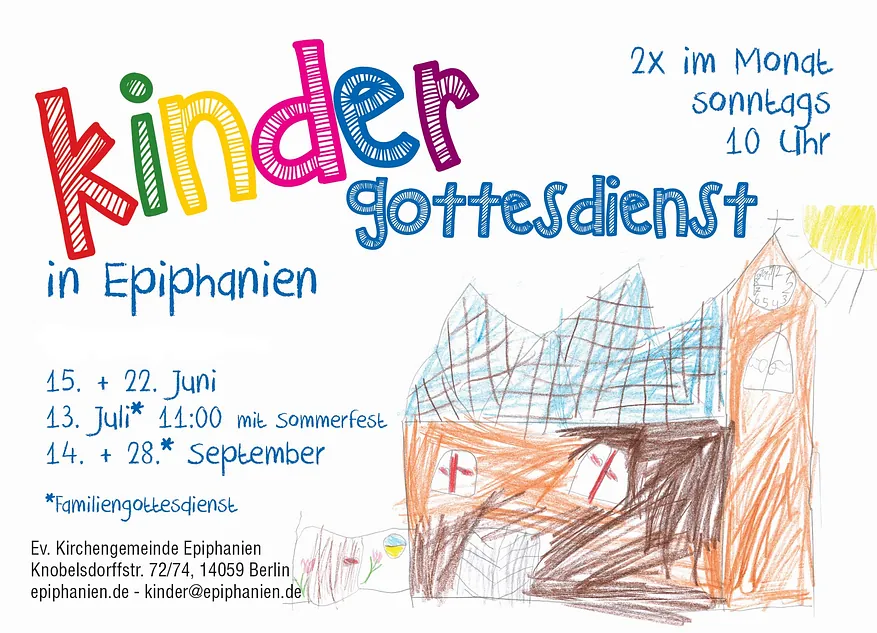 kinder
gottesdienst
in Epiphanien
2x im Monat
sonntags
10 Uhr
15. + 22. Juni
13. Juli* 11:00 mit Sommerfest
14. + 28.* September
*Familiengottesdienst
Ev. Kirchengemeinde Epiphanien
Knobelsdorffstr. 72/74, 14059 Berlin
epiphanien.de - kinder@epiphanien.de